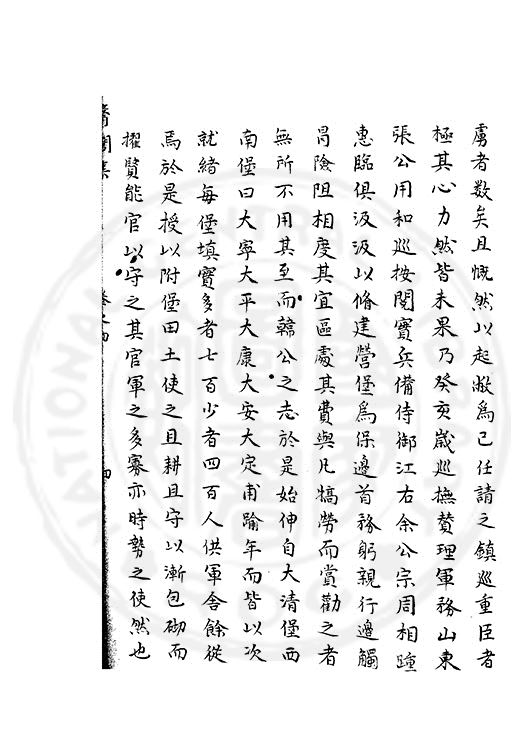 虜者数矣且慨然以起敝為己任請之鎮巡重臣者
極其心力然皆未果乃癸亥歲巡撫贊理軍務山東
張公用和巡按閱實兵備侍御江右余公宗周相踵
惠臨俱汲汲以脩建營堡為保邊首務躬親行邊觸
冐險阻相度其宜區處其費與凡犒勞而賞勸之者
無所不用其至而韓公之志於是始伸自大清堡西
南堡曰大寧大平大康大安大定甫踰年而皆以次
就緒每堡填實多者七百少者四百人供軍舍餘從
焉於是授以附堡田土使之且耕且守以漸包砌而
擢賢能官以守之其官軍之多寡亦時勢之使然也
集
卷之四
四
NATIONAL CENTRAL LIBRARY